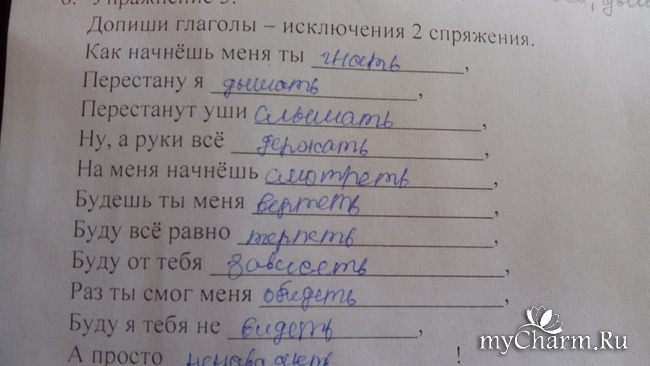 6. Упражнение 3.
Допиши глаголы – исключения 2 спряжения.
Как начнёшь меня ты гнать,
Перестану я дышать,
Перестанут уши слышать,
Ну, а руки всё держать,
На меня начнёшь смотреть,
Будешь ты меня вертеть,
Буду всё равно терпеть,
Буду от тебя зависеть,
Раз ты смог меня обидеть,
Буду я тебя не видеть,
А просто !
myCharm.Ru